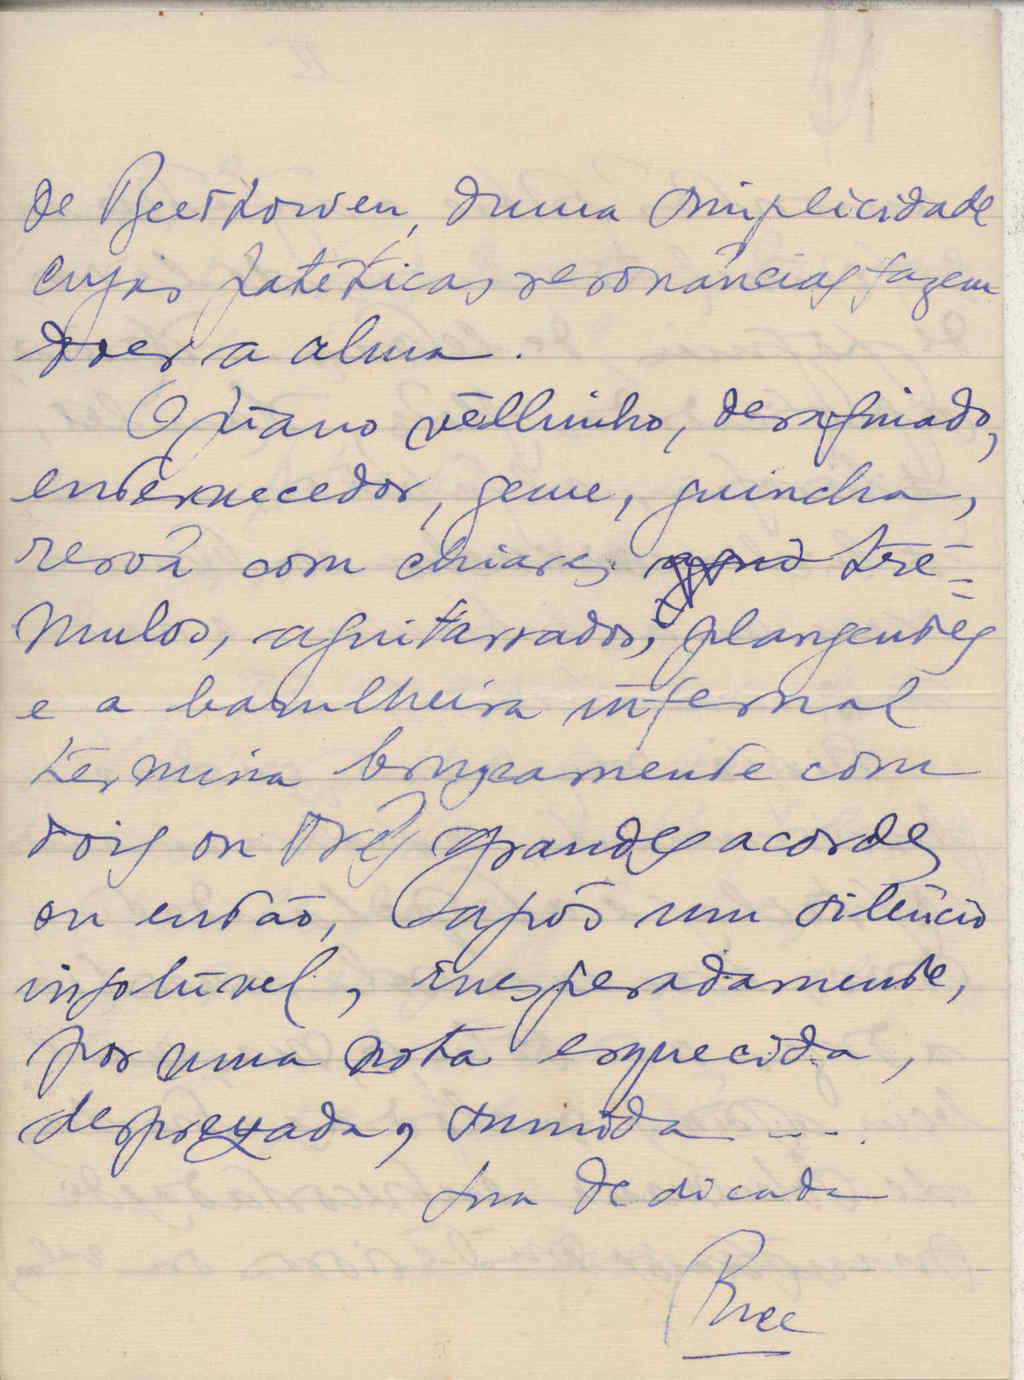 de Beethowen, duma simplicidade
cujas patéticas resonâncias fazem
doer a alma.
O piano vèlhinho, desafinado,
enternecedor, geme, guincha,
resôa com chiares tré-
mulos, aguitarrados, plangentes
e a barulheira infernal
termina bruscamente com
dois ou três grandes acordes
ou então, após um silêncio
insolúvel, inesperadamente,
por uma nota esquecida,
desprezada, sumida ....
sua dedicada